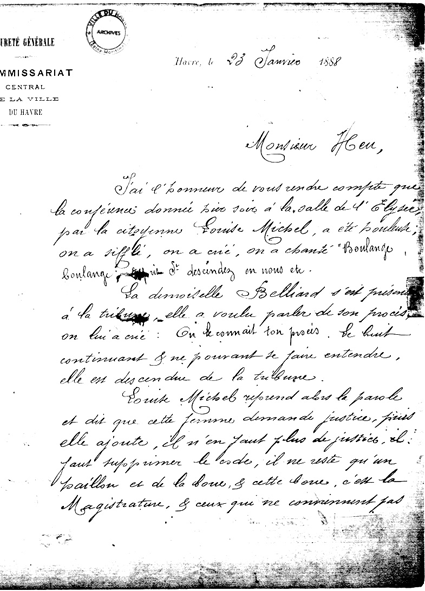 URETÉ GÉNÉRALE
MMISSARIAT
CENTRAL
E LA VILLE
DU HAVRE
VILLE DU
ARCHIVES
Havre, le 23 Janvier 1888
Monsieur Heu,
J'ai l'honneur de vous rendre compte que
la conférence donnée hier soir à la salle de l'Elysée
par la citoyenne Louise Michel, a été houleuse
on a sifflé, on a crié, on a chanté "Boulange
Boulange, St descendez en nous etc.
La demoiselle Belliard s'est présen
à la tribune, elle a voulu parler de son procès
on lui a crié : On le connait ton procès. Le bruit
continuant & ne pouvant se faire entendre,
elle est descendue de la tribune.
Louise Michel reprend alors la parole
et dit que cette femme demande justice, puis
elle ajoute, il n'en faut plus de justice, il
faut supprimer le code, il ne reste qu'un
paillon et de la boue, & cette boue, c'est la
Magistrature, & ceux qui ne conviennent pas